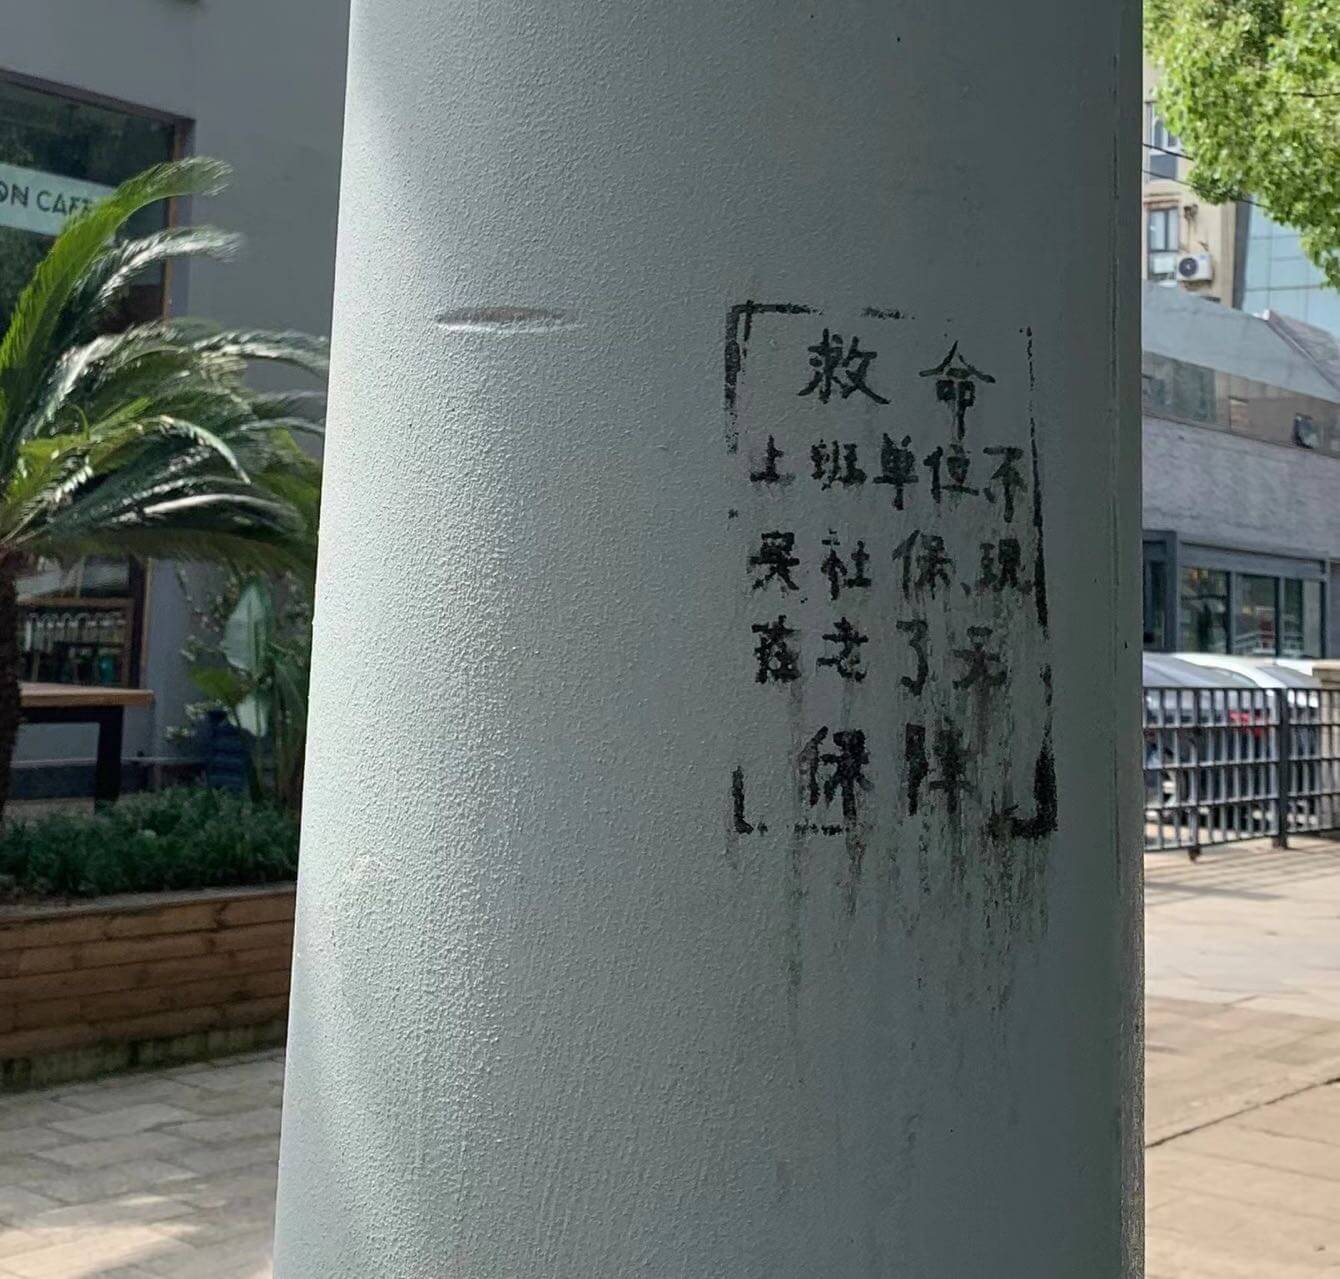 ON CAFE
救命
上班单位不
买社保、现
在老了无
保障